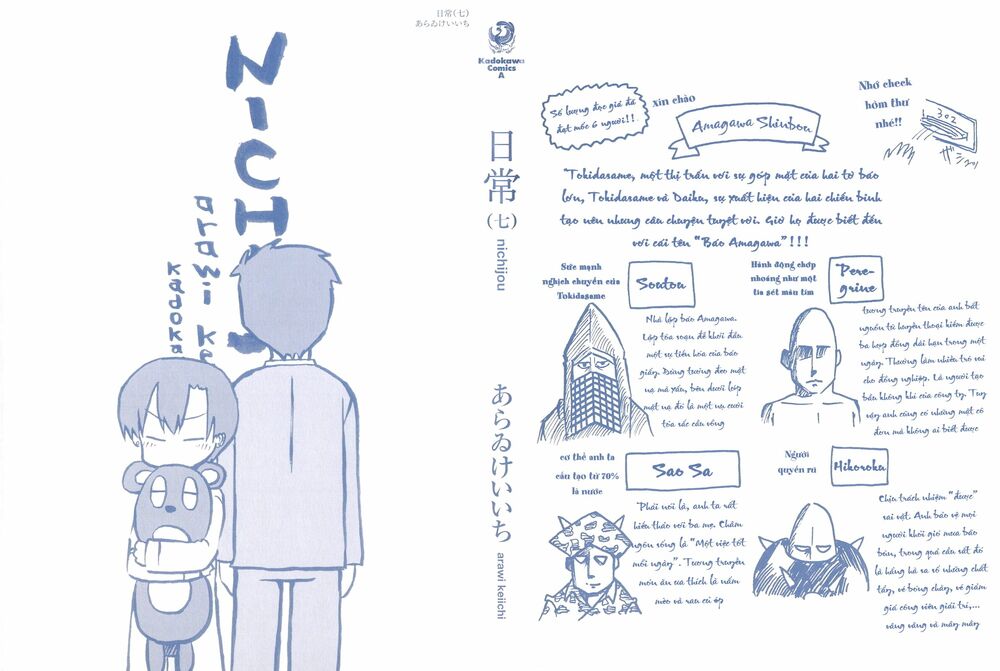 NICHIJ
arawi ke
kadoka
日常(七)
あらゐけいいち
Kadokawa
Comics
A
日常
(七)
nichijou
あらゐけいいち
arawi keiichi
Số lượng đọc giả đã
đạt mốc 6 người!!
xin chào
Amagawa Shinbou
Nhớ check
hòm thư
nhé!!
302
"Tokidasame, một thị trấn với sự góp mặt của hai tờ báo
lớn, Tokidasame và Daiku, sự xuất hiện của hai chiến binh
tạo nên nhưng câu chuyện tuyệt vời. Giờ họ được biết đến
với cái tên "Báo Amagawa"!!!
Sức mạnh
nghịch chuyển của
Tokidasame
Soutou
Nhà lập báo Amagawa.
Lập tòa soạn để khởi đầu
một sự tiến hóa của báo
giấy. Đừng tưởng đeo mặt
nạ mà xấu, bên dưới lớp
mặt nạ đó là một nụ cười
tỏa sắc cầu vồng
Hành động chớp
nhoáng như một
tia sét màu tím
Pere-
grine
tương truyền tên của anh bắt
nguồn từ huyền thoại kiếm được
ba hợp đồng dài hạn trong một
ngày. Thường làm nhiều trò vui
cho đồng nghiệp. Là người tạo
bầu không khí của công ty. Tuy
vậy anh cũng có những mặt cô
đơn mà không ai biết được
cơ thể anh ta
cấu tạo từ 70%
là nước
Sao Sa
"Phải nói là, anh ta rất
hiếu thảo với ba mẹ. Châm
ngôn sống là "Một việc tốt
mỗi ngày". Tương truyền
món ăn ưa thích là nấm
mèo và rau củ ép
Người
quyến rũ
Hikoroku
Chịu trách nhiệm "được"
sai vặt. Anh bảo vệ mọi
người khỏi gió mưa bão
bùn, trong quá cầu sắt đó
là hằng hà sa số những chất
tẩy, vé bóng chày, vé giảm
giá công viên giải trí,...
vâng vâng và mây mây